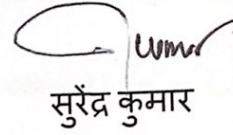 सुरेंद्र कुमार